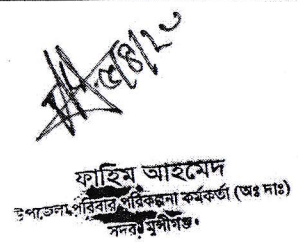 ফাহিম আহমেদ
উপজেলা পরিবার পরিকল্পনা কর্মকর্তা (অঃ দাঃ)
সদর, মুন্সীগঞ্জ।